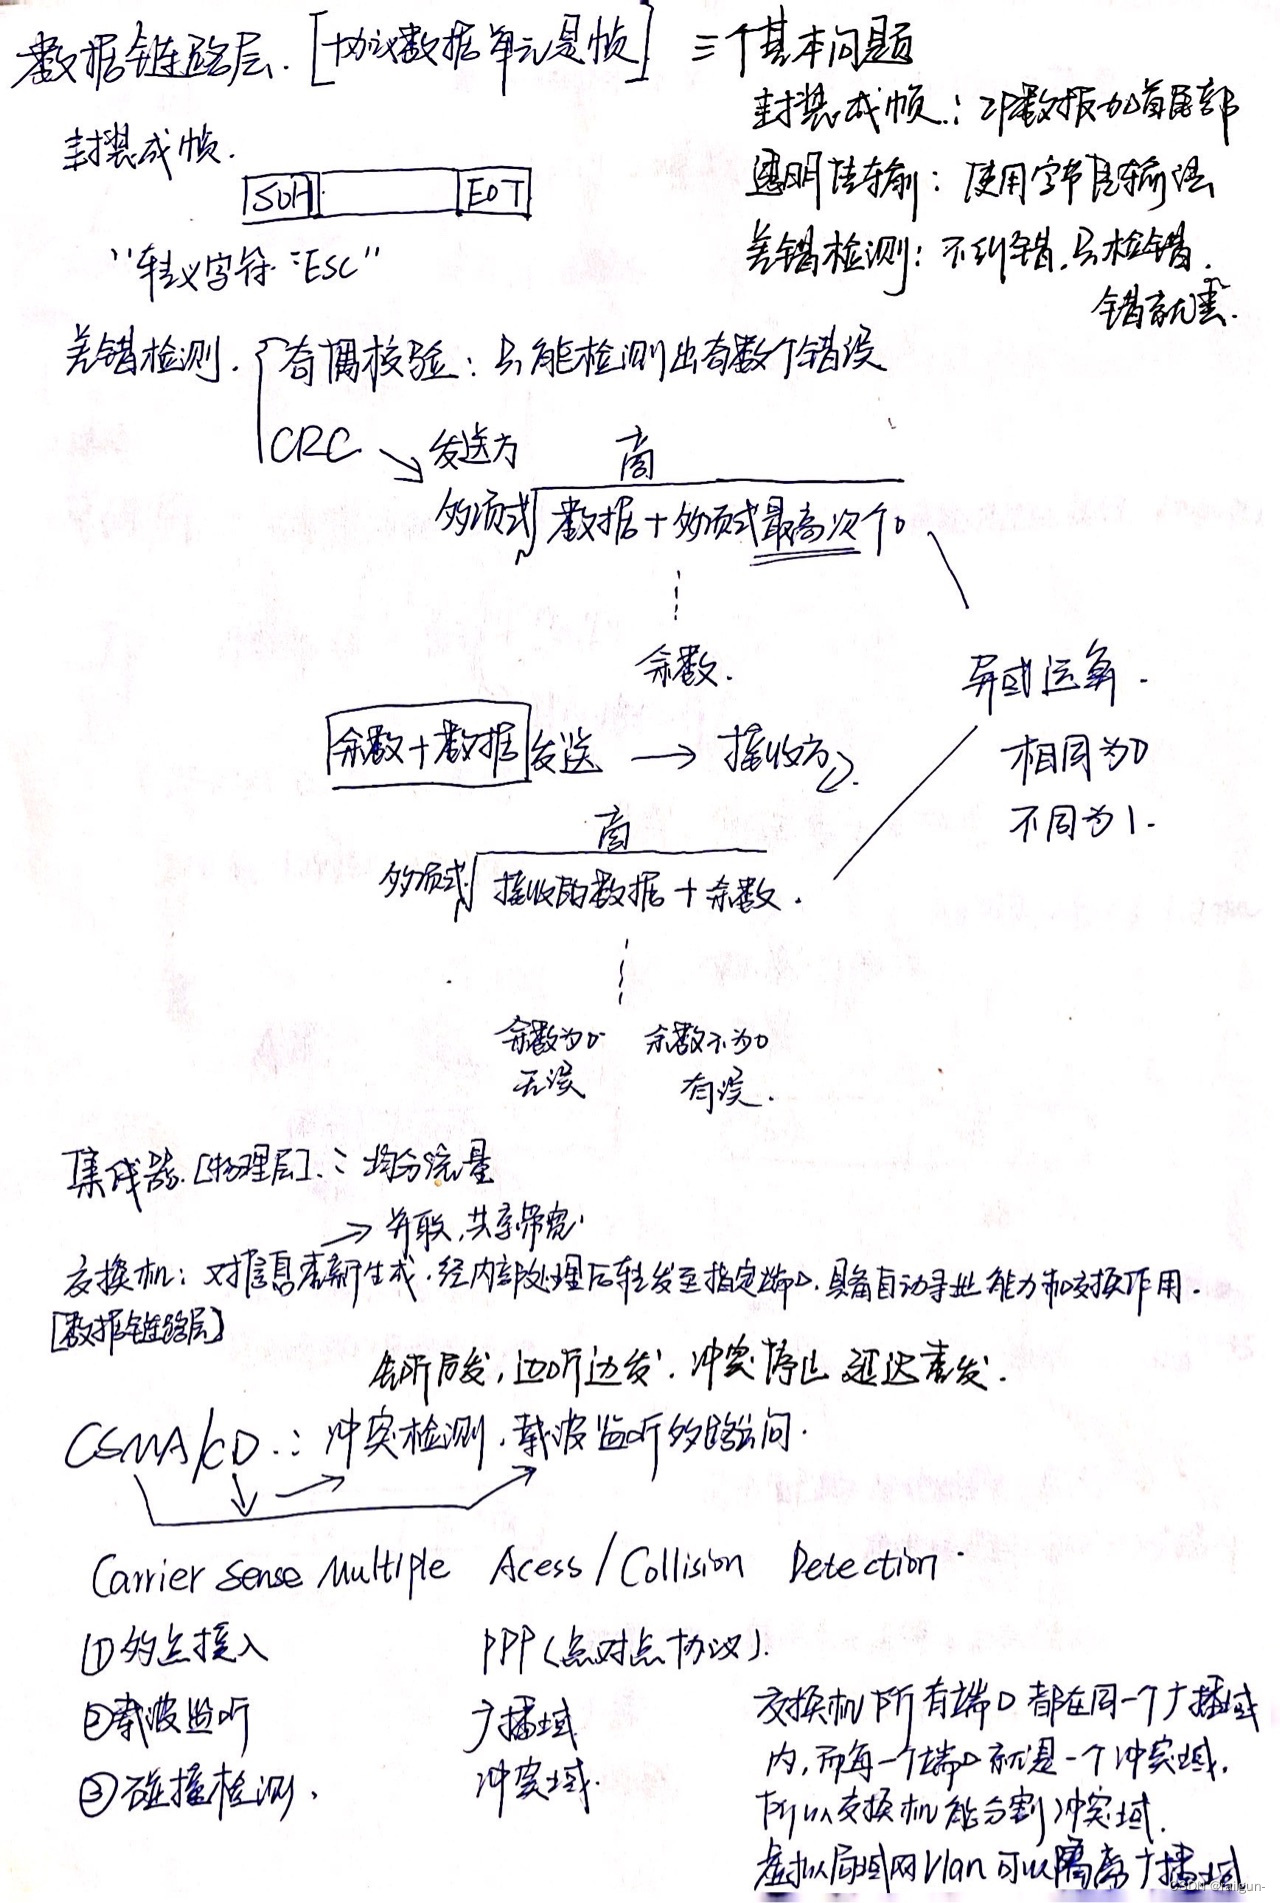 数据链路层. [协议数据单元是帧] 三个基本问题
封装成帧.: 对数据加首尾部
封装成帧.
透明传输: 使用字节传输法
SOH EOT
差错检测: 不纠错.只检错.
错就丢.
"转义字符:"ESC"
差错检测. 奇偶校验: 只能检测出奇数个错误
CRC 发送方
商
多项式 数据+多项式最高次个0
余数.
异或运算.
相同为0
不同为1.
余数+数据 发送 → 接收方
商
多项式 接收的数据+余数.
余数为0 余数不为0
无误 有误.
集线器.[物理层].: 均分流量
→ 并联,共享带宽.
交换机: 对信息重新生成.经内部处理后转发至指定端口.具备自动寻址能力和交换作用.
[数据链路层]
先听后发,边听边发.冲突停止 延迟重发.
CSMA/CD.: 冲突检测.载波监听多路访问.
Carrier Sense Multiple Acess/Collision Detection.
①多点接入 PPP(点对点协议).
②载波监听 广播域
③碰撞检测. 冲突域.
交换机所有端口都在同一个广播域
内,而每一个端口就是一个冲突域.
所以交换机能分割冲突域.
虚拟局域网Vlan可以隔离广播域
CSDN @railgun-